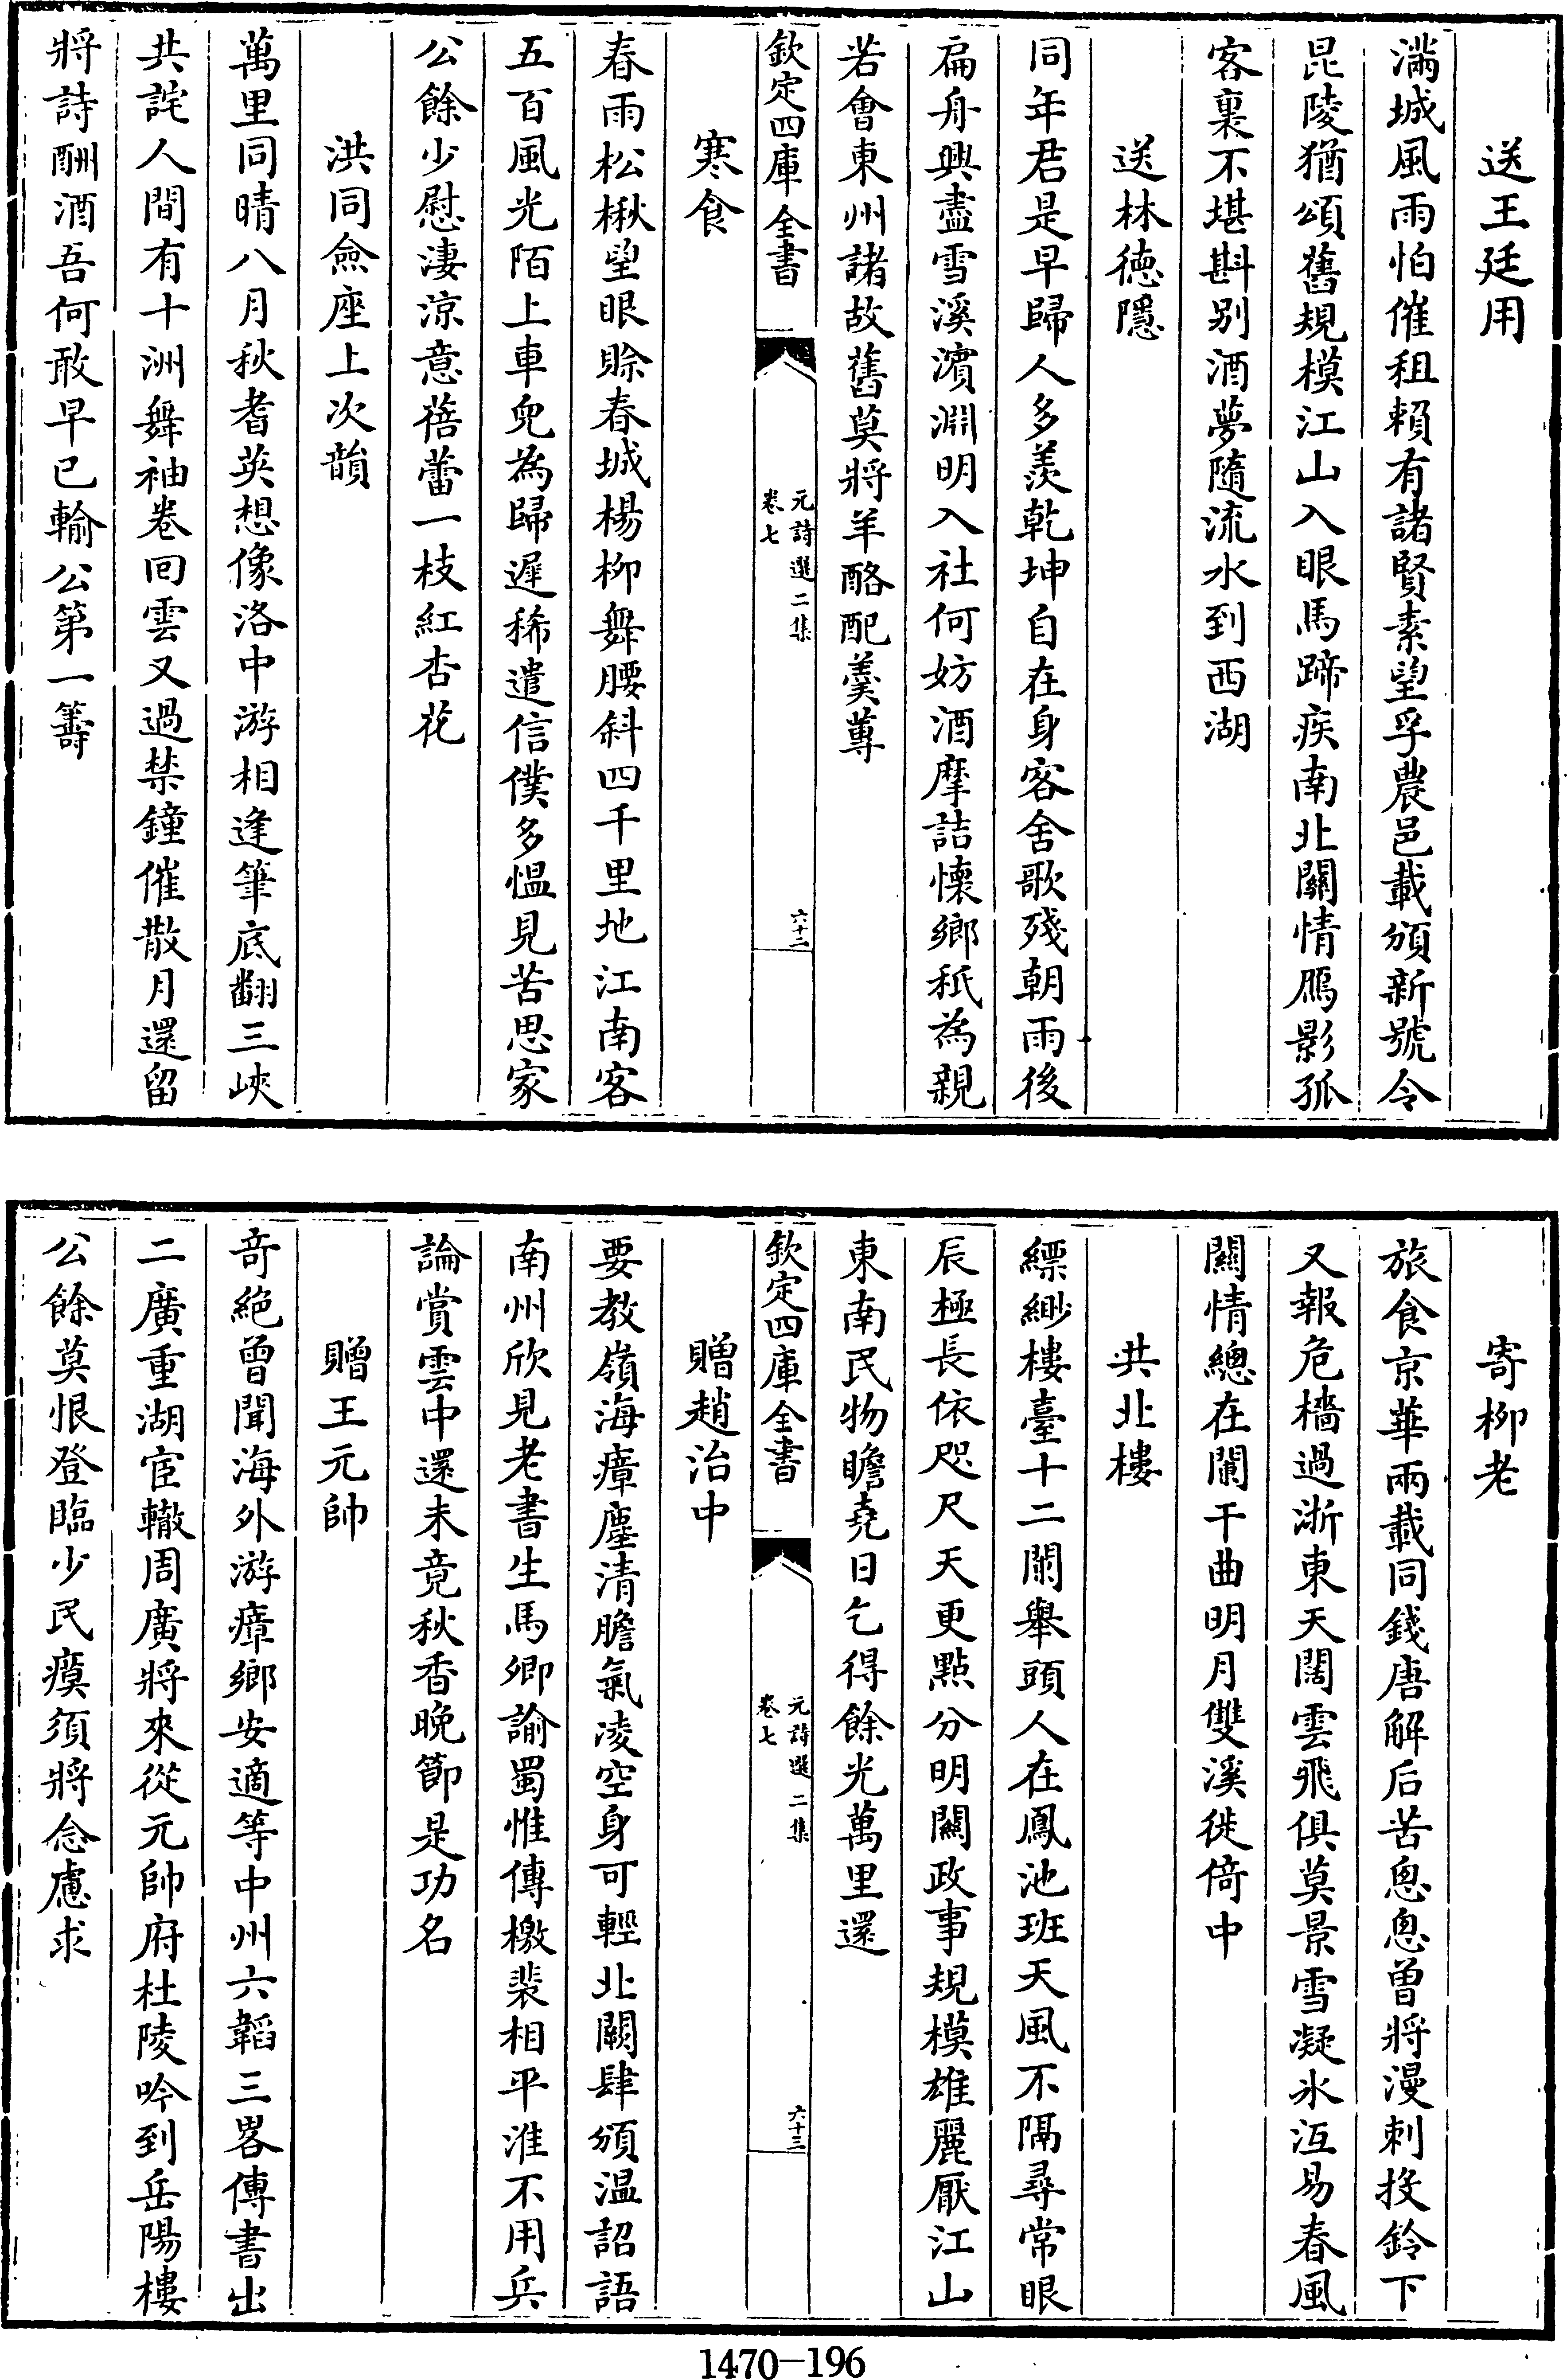 送王廷用
滿城風雨怕催租賴有諸賢素望孚農邑載頒新號令
昆陵猶頌舊規模江山入眼馬蹄疾南北關情鴈影孤
客裏不堪斟别酒夢隨流水到西湖
送林德隱
同年君是早歸人多羨乾坤自在身客舍歌殘朝雨後
扁舟興盡雪溪濱淵明入社何妨酒摩詰懷鄉秪為親
若會東州諸故舊莫將羊酪配羹蓴
欽定四庫全書
元詩選二集
卷七
六十二
寒食
春雨松楸望眼賒春城楊柳舞腰斜四千里地江南客
五百風光陌上車兒為歸遲稀遣信僕多愠見苦思家
公餘少慰淒涼意蓓蕾一枝紅杏花
洪同僉座上次韻
萬里同晴八月秋耆英想像洛中游相逢筆底翻三峽
共詫人間有十洲舞袖卷回雲又過禁鐘催散月還留
將詩酬酒吾何敢早已輸公第一籌
寄柳老
旅食京華兩載同錢唐解后苦悤悤曽將漫刺投鈴下
又報危檣過浙東天闊雲飛俱莫景雪凝氷沍易春風
闗情總在闌干曲明月雙溪徙倚中
共北樓
縹緲樓臺十二闌舉頭人在鳳池班天風不隔尋常眼
辰極長依咫尺天更點分明闗政事規模雄麗厭江山
東南民物瞻堯日乞得餘光萬里還
欽定四庫全書
元詩選二集
卷七
六十三
贈趙治中
要教嶺海瘴塵清膽氣凌空身可輕北闕肆頒温詔語
南州欣見老書生馬卿諭蜀惟傳檄裴相平淮不用兵
論賞雲中還未竟秋香晚節是功名
贈王元帥
奇絶曽聞海外游瘴鄉安適等中州六韜三畧傳書出
二廣重湖宦轍周廣將來從元帥府杜陵吟到岳陽樓
公餘莫恨登臨少民瘼須將念慮求
1470—196